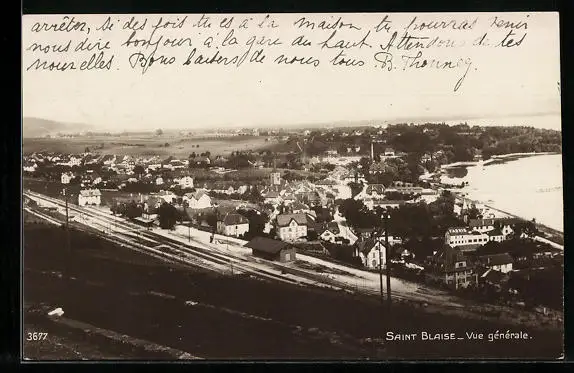 arrêter, si des fois tu es à la maison, tu pourras venir
nous dire bonjour à la gare du haut. Attendons de tes
nouvelles. Bons baisers de nous tous. B. Thonney.
3677
SAINT BLAISE _ Vue générale.